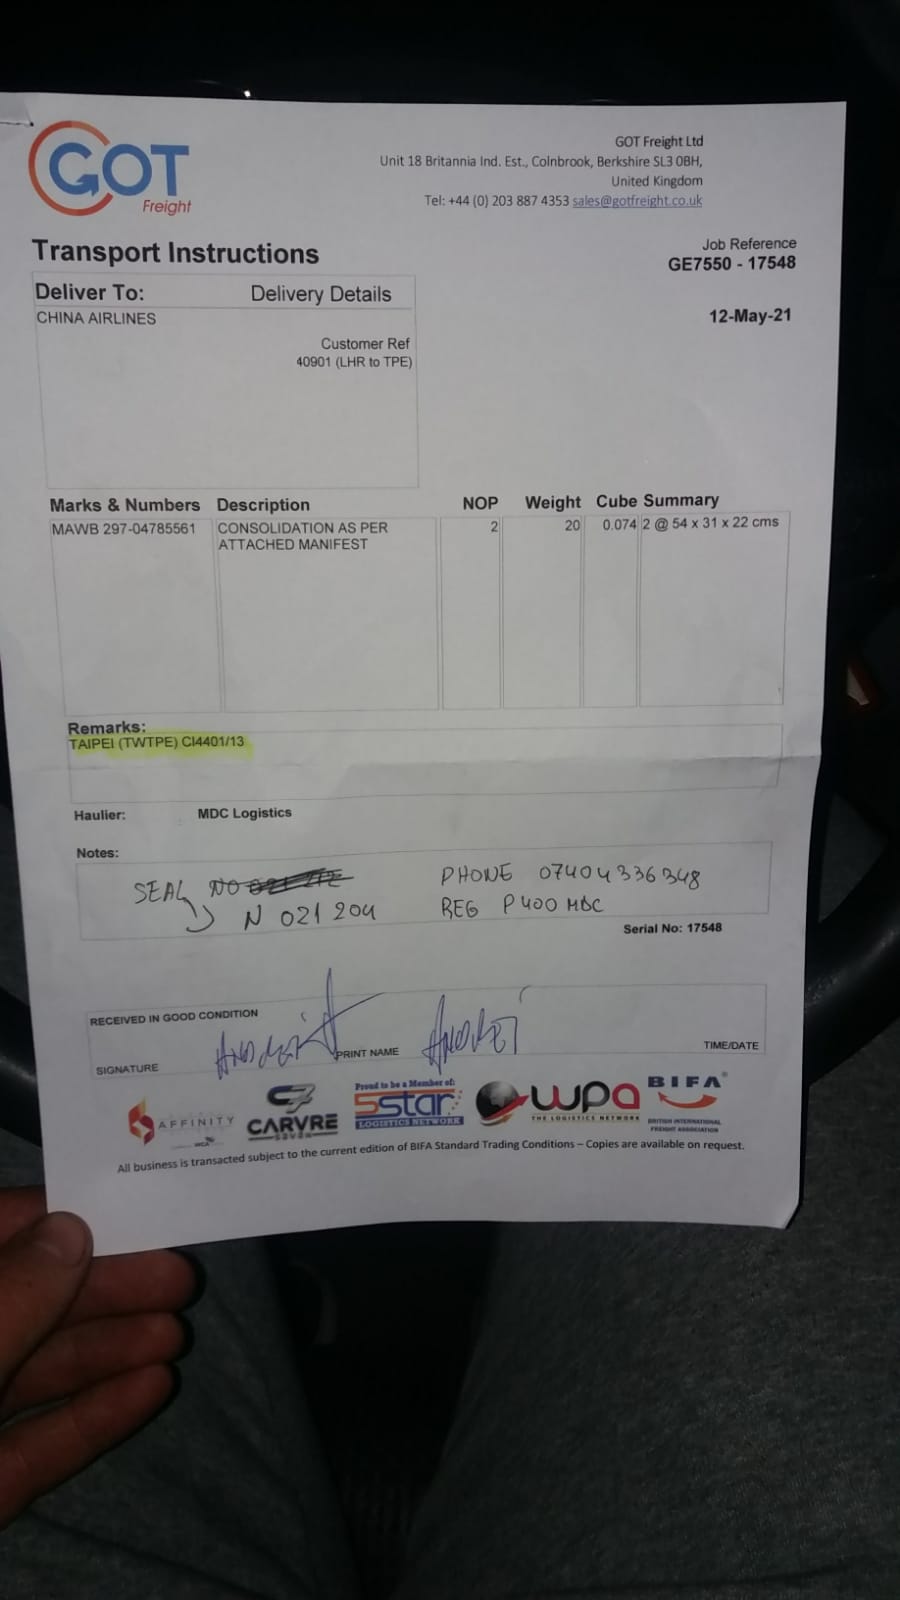 GOT
Freight
GOT Freight Ltd
Unit 18 Britannia Ind. Est., Colnbrook, Berkshire SL3 0BH,
United Kingdom
Tel: +44 (0) 203 887 4353 sales@gotfreight.co.uk
Transport Instructions
Job Reference
GE7550 - 17548
12-May-21
Deliver To: Delivery Details
CHINA AIRLINES
Customer Ref
40901 (LHR to TPE)
Marks & Numbers Description NOP Weight Cube Summary
MAWB 297-04785561 CONSOLIDATION AS PER 2 20 0.074 2 @ 54 x 31 x 22 cms
ATTACHED MANIFEST
Remarks:
TAIPEI (TWTPE) CI4401/13
Haulier: MDC Logistics
Notes:
SEAL NO PHONE 07404336348
N 021204 REG P400 MDC
Serial No: 17548
RECEIVED IN GOOD CONDITION
SIGNATURE ANDREI PRINT NAME ANDREI TIME/DATE
AFFINITY
CARVRE
SEVEN
Proud to be a Member of:
5star
LOGISTICS NETWORK
wpa
THE LOGISTICS NETWORK
BIFA
BRITISH INTERNATIONAL
FREIGHT ASSOCIATION
All business is transacted subject to the current edition of BIFA Standard Trading Conditions – Copies are available on request.